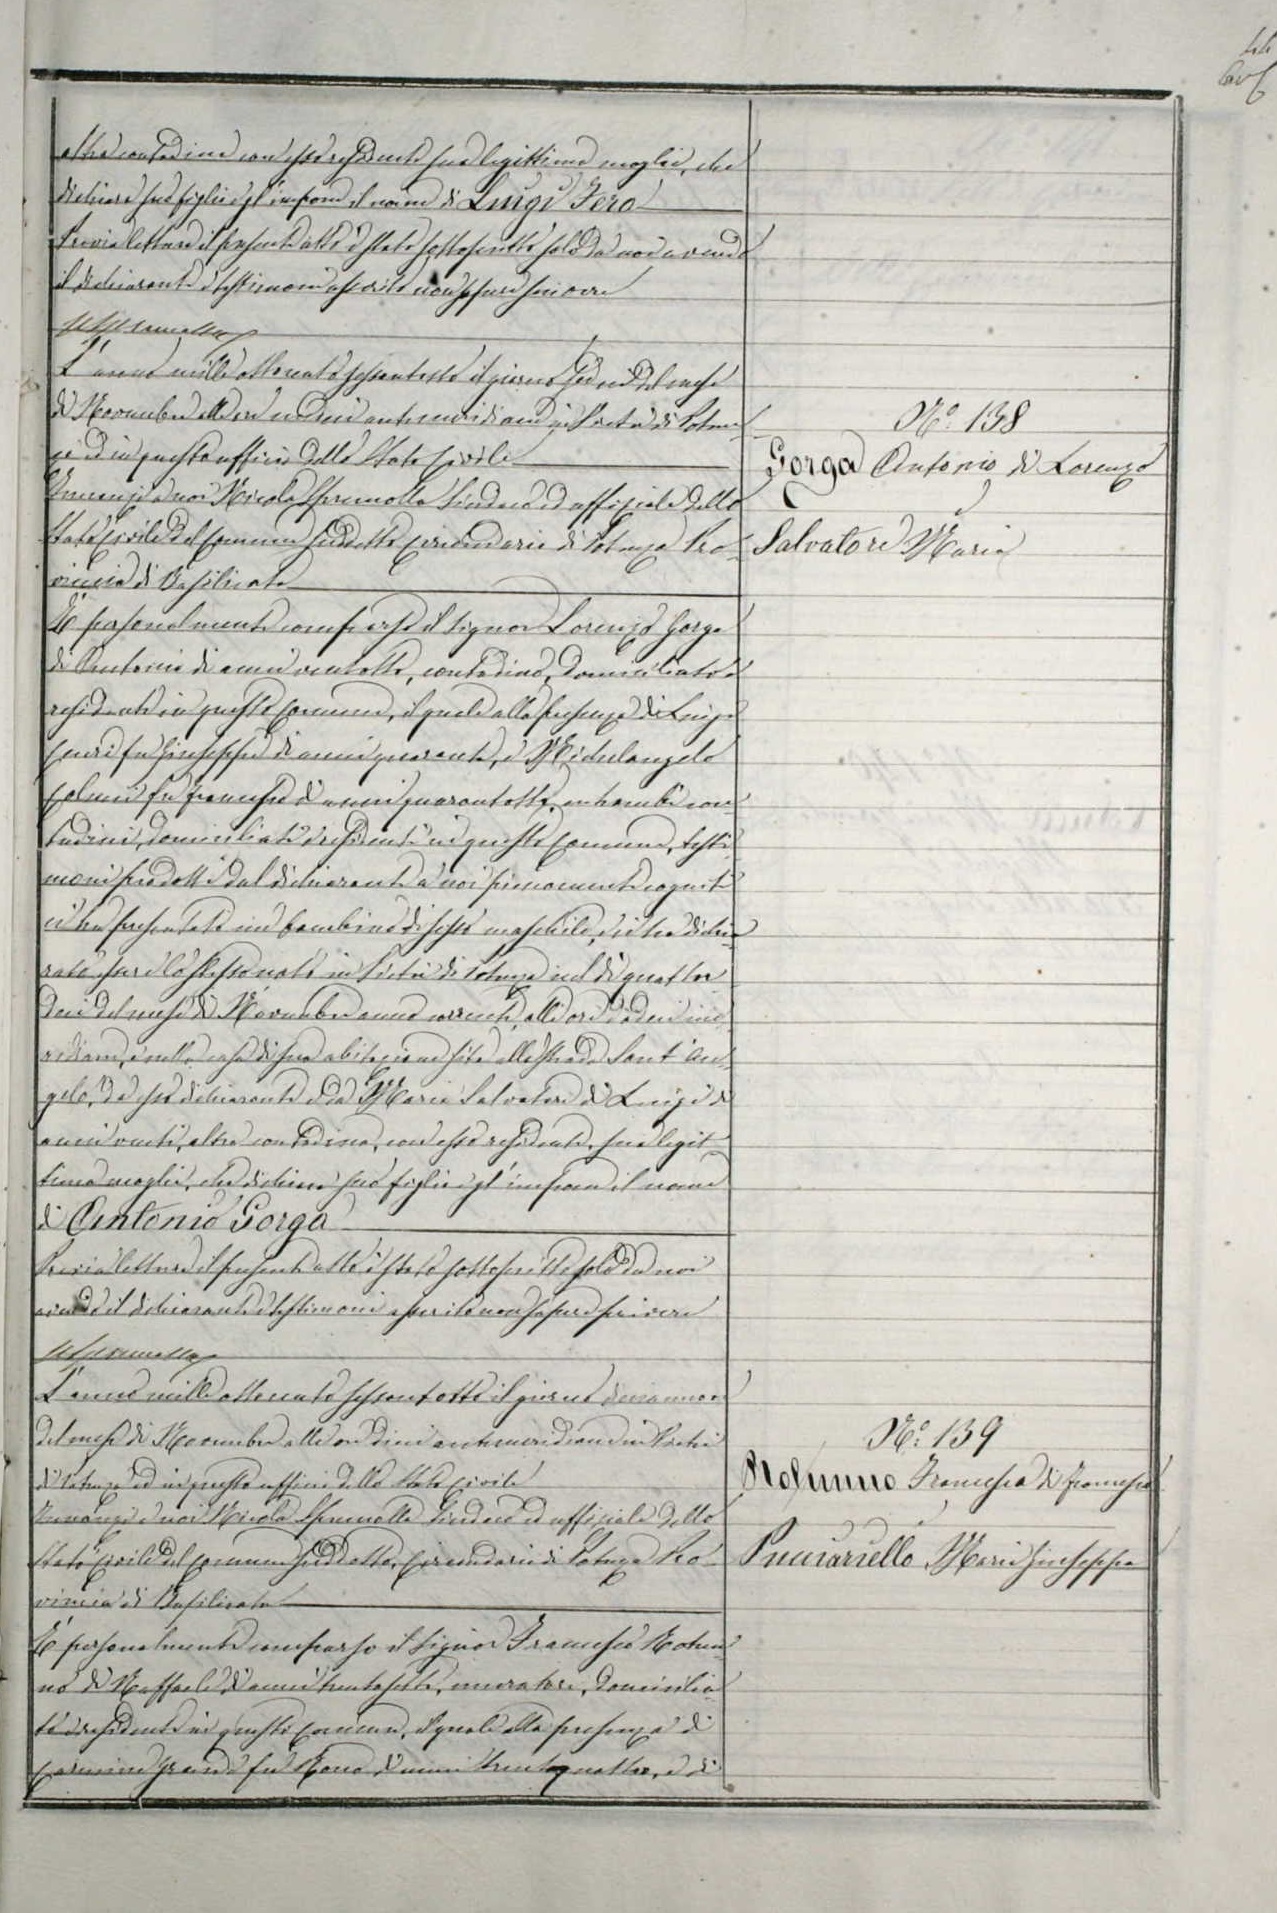 altra contadina con esso residente sua legittima moglie, che
dichiara suo figlio e gl'impone il nome di Luigi Fero
Previa lettura il presente atto è stato sottoscritto solo da noi avendo
il dichiarante e testimoni asserito non sapere scrivere
L'anno mille ottocento sessantotto il giorno sedici del mese
di Novembre alle ore undici antimeridiane in Pietra di Poten
za ed in questo officio dello Stato Civile
Innanzi a noi Nicola Spremolla Sindaco ed uffiziale dello
Stato Civile del Comune suddetto Circondario di Potenza Pro
vincia di Basilicata
È personalmente comparso il signor Lorenzo Gorga
di Antonio di anni ventotto, contadino, domiciliato e
residente in questo Comune, il quale alla presenza di Luigi
fu Giuseppe di anni quaranta, e Michelangelo
fu Francesco di anni quarantotto, entrambi con
tadini, domiciliati e residenti in questo Comune, testi
moni prodotti dal dichiarante a noi pienamente cogniti
ci ha presentato un bambino di sesso maschile, e ci ha dichia
rato essere lo stesso nato in Pietra di Potenza nel dì quattor
dici del mese di Novembre anno corrente, alle ore dodici me
ridiane, e nella casa di sua abitazione sita alla strada Sant'An
gelo, da esso dichiarante e da Maria Salvatore di Luigi di
anni venti, altra contadina, con esso residente, sua legit
tima moglie, che dichiara suo figlio e gl'impone il nome
di Antonio Gorga
Previa lettura il presente atto è stato sottoscritto solo da noi
avendo il dichiarante e testimoni asserito non sapere scrivere
L'anno mille ottocento sessantotto il giorno diciannove
del mese di Novembre alle ore dieci antimeridiane in Pietra
di Potenza ed in questo officio dello Stato Civile
Innanzi a noi Nicola Spremolla Sindaco ed uffiziale dello
Stato Civile del Comune suddetto, Circondario di Potenza Pro
vincia di Basilicata
È personalmente comparso il signor Francesco Rotun
no di Raffaele di anni trentasette, muratore, domicilia
to e residente in questo Comune, il quale alla presenza di
Carmine Grande fu Rocco di anni trentaquattro, e di
N.º 138
Gorga Antonio di Lorenzo
e
Salvatore Maria
N.º 139
Rotunno Francesca di Francesco
e
Pucciariello Maria Giuseppa